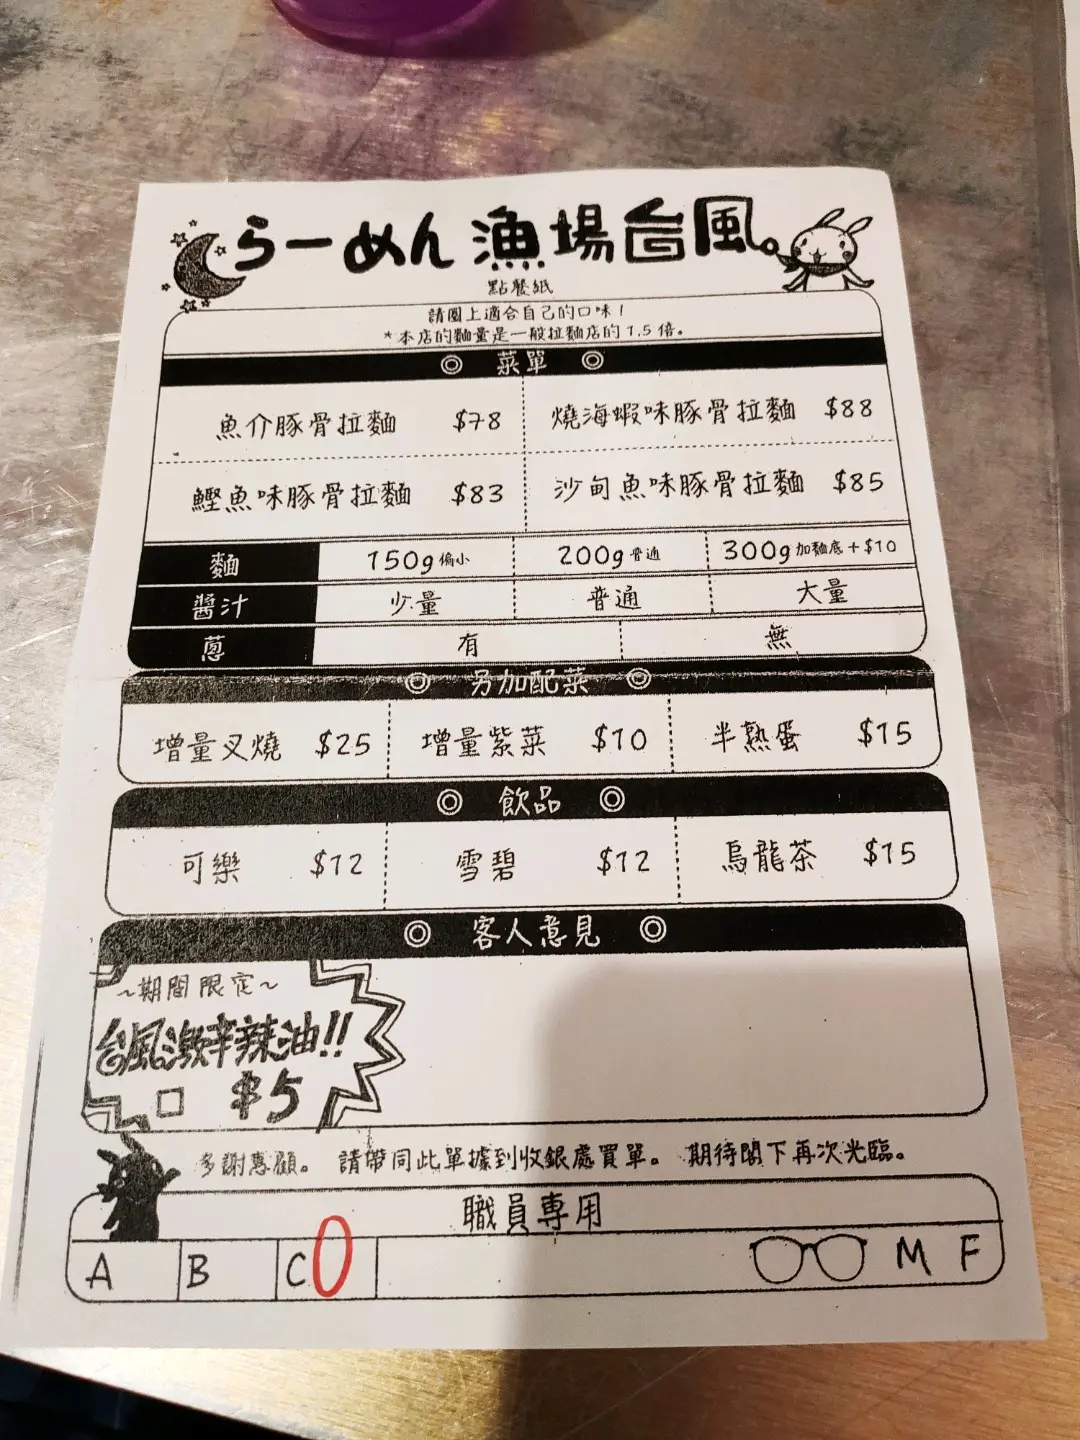 らーめん 漁場台風
點餐紙
請圈上適合自己的口味！
*本店的麵量是一般拉麵店的1.5倍。
◎ 菜單 ◎
魚介豚骨拉麵 $78 燒海蝦味豚骨拉麵 $88
鰹魚味豚骨拉麵 $83 沙甸魚味豚骨拉麵 $85
麵 150g偏小 200g普通 300g加麵底+$10
醬汁 少量 普通 大量
蔥 有 無
◎ 另加配菜 ◎
增量叉燒 $25 增量紫菜 $10 半熟蛋 $15
◎ 飲品 ◎
可樂 $12 雪碧 $12 烏龍茶 $15
◎ 客人意見 ◎
~期間限定~
台風激辛辣油!!
□ $5
多謝惠顧。 請帶同此單據到收銀處買單。 期待閣下再次光臨。
職員專用
A B C 0 M F